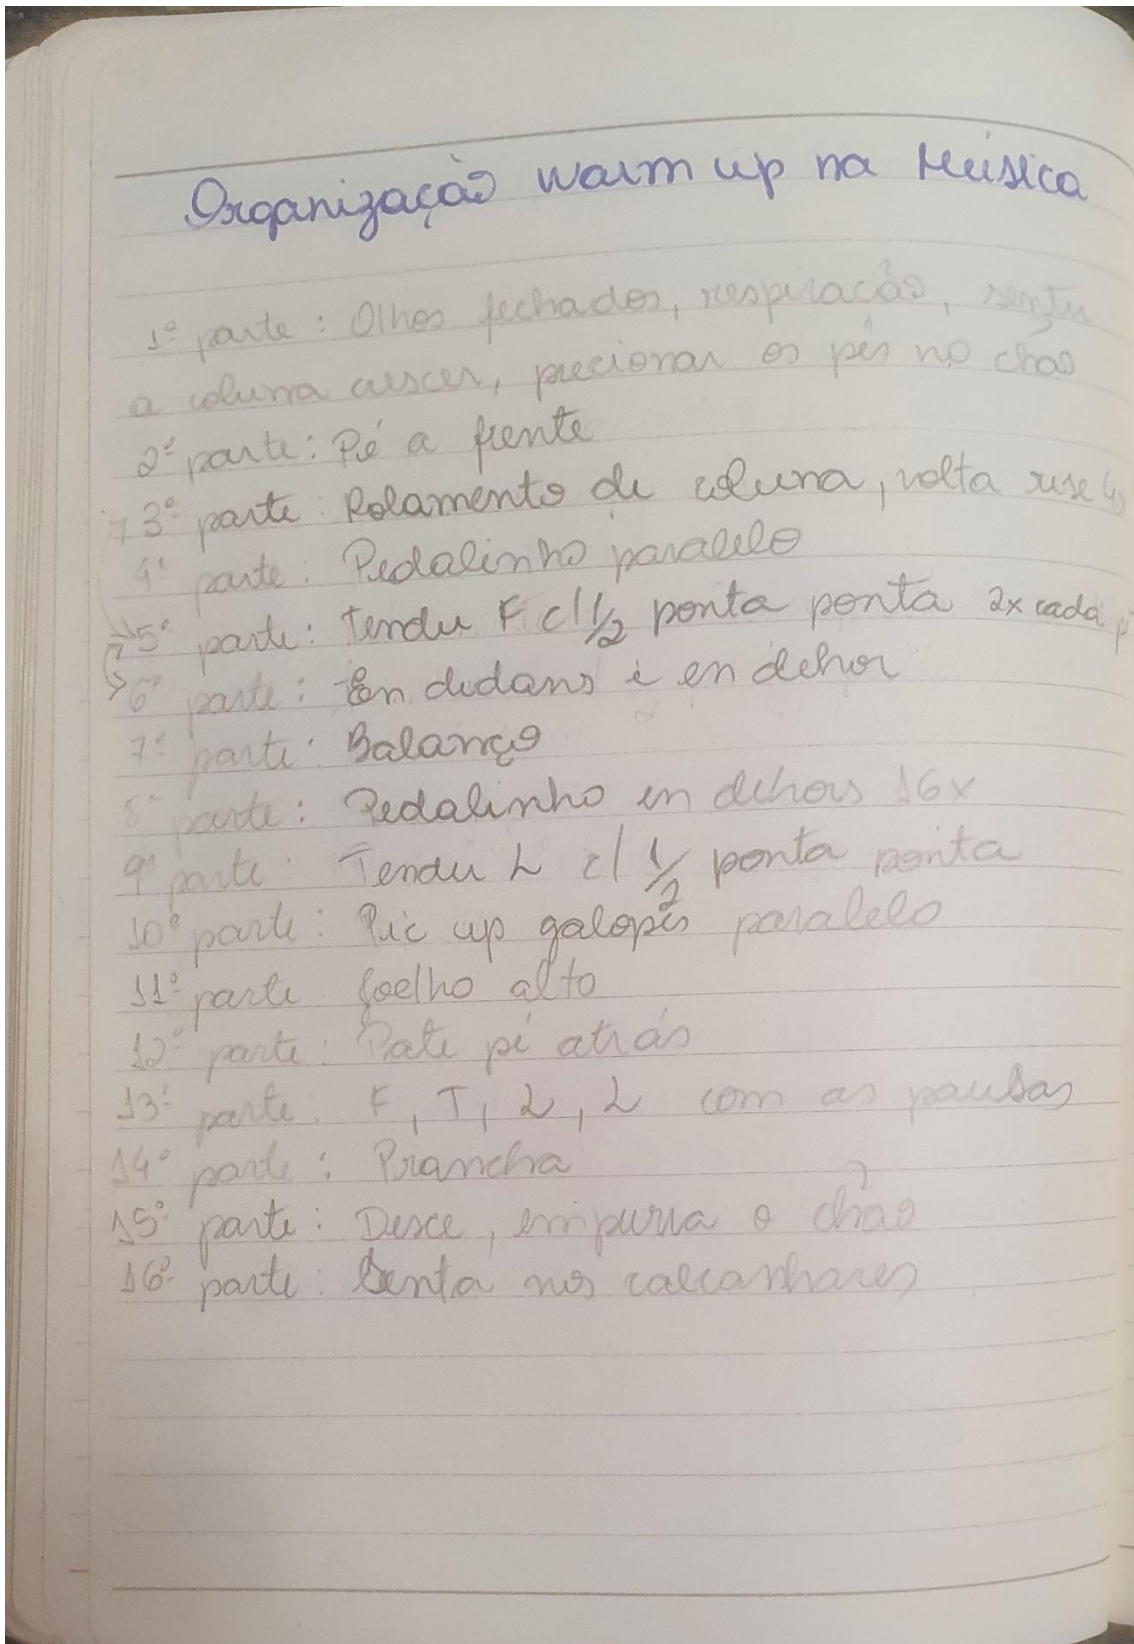 Organização warm up na Música
1º parte: Olhos fechados, respiração, sentir
a coluna crescer, precionar os pés no chão
2ª parte: Pé a frente
3ª parte: Rolamento de coluna, volta rise
4ª parte: Pedalinho paralelo
5ª parte: Tendu F c/ 1/2 ponta ponta 2x cada
6ª parte: En dedans e en dehor
7ª parte: Balanço
8ª parte: Pedalinho en dehors 16x
9ª parte: Tendu L c/ 1/2 ponta ponta
10º parte: Pic up galopês paralelo
11º parte Joelho alto
12ª parte: Bate pé atrás
13ª parte: F, T, L, L com as pausas
14º parte: Prancha
15º parte: Desce, empurra o chão
16º parte: Senta nos calcanhares